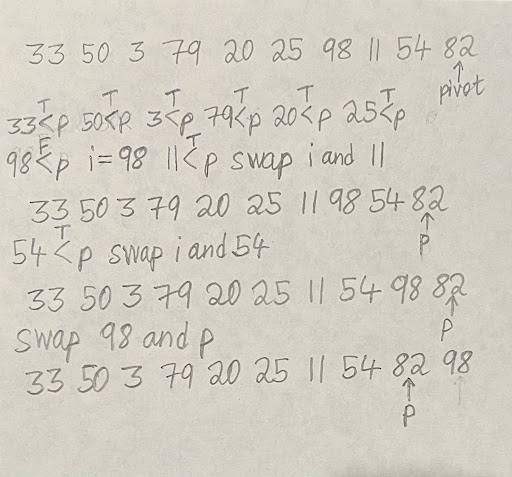 33 50 3 79 20 25 98 11 54 82
↑
pivot
T T T T T T
33<p 50<p 3<p 79<p 20<p 25<p
F T
98<p i=98 11<p swap i and 11
33 50 3 79 20 25 11 98 54 82
↑
T
54<p swap i and 54
p
33 50 3 79 20 25 11 54 98 82
↑
p
swap 98 and p
33 50 3 79 20 25 11 54 82 98
↑ ↑
p